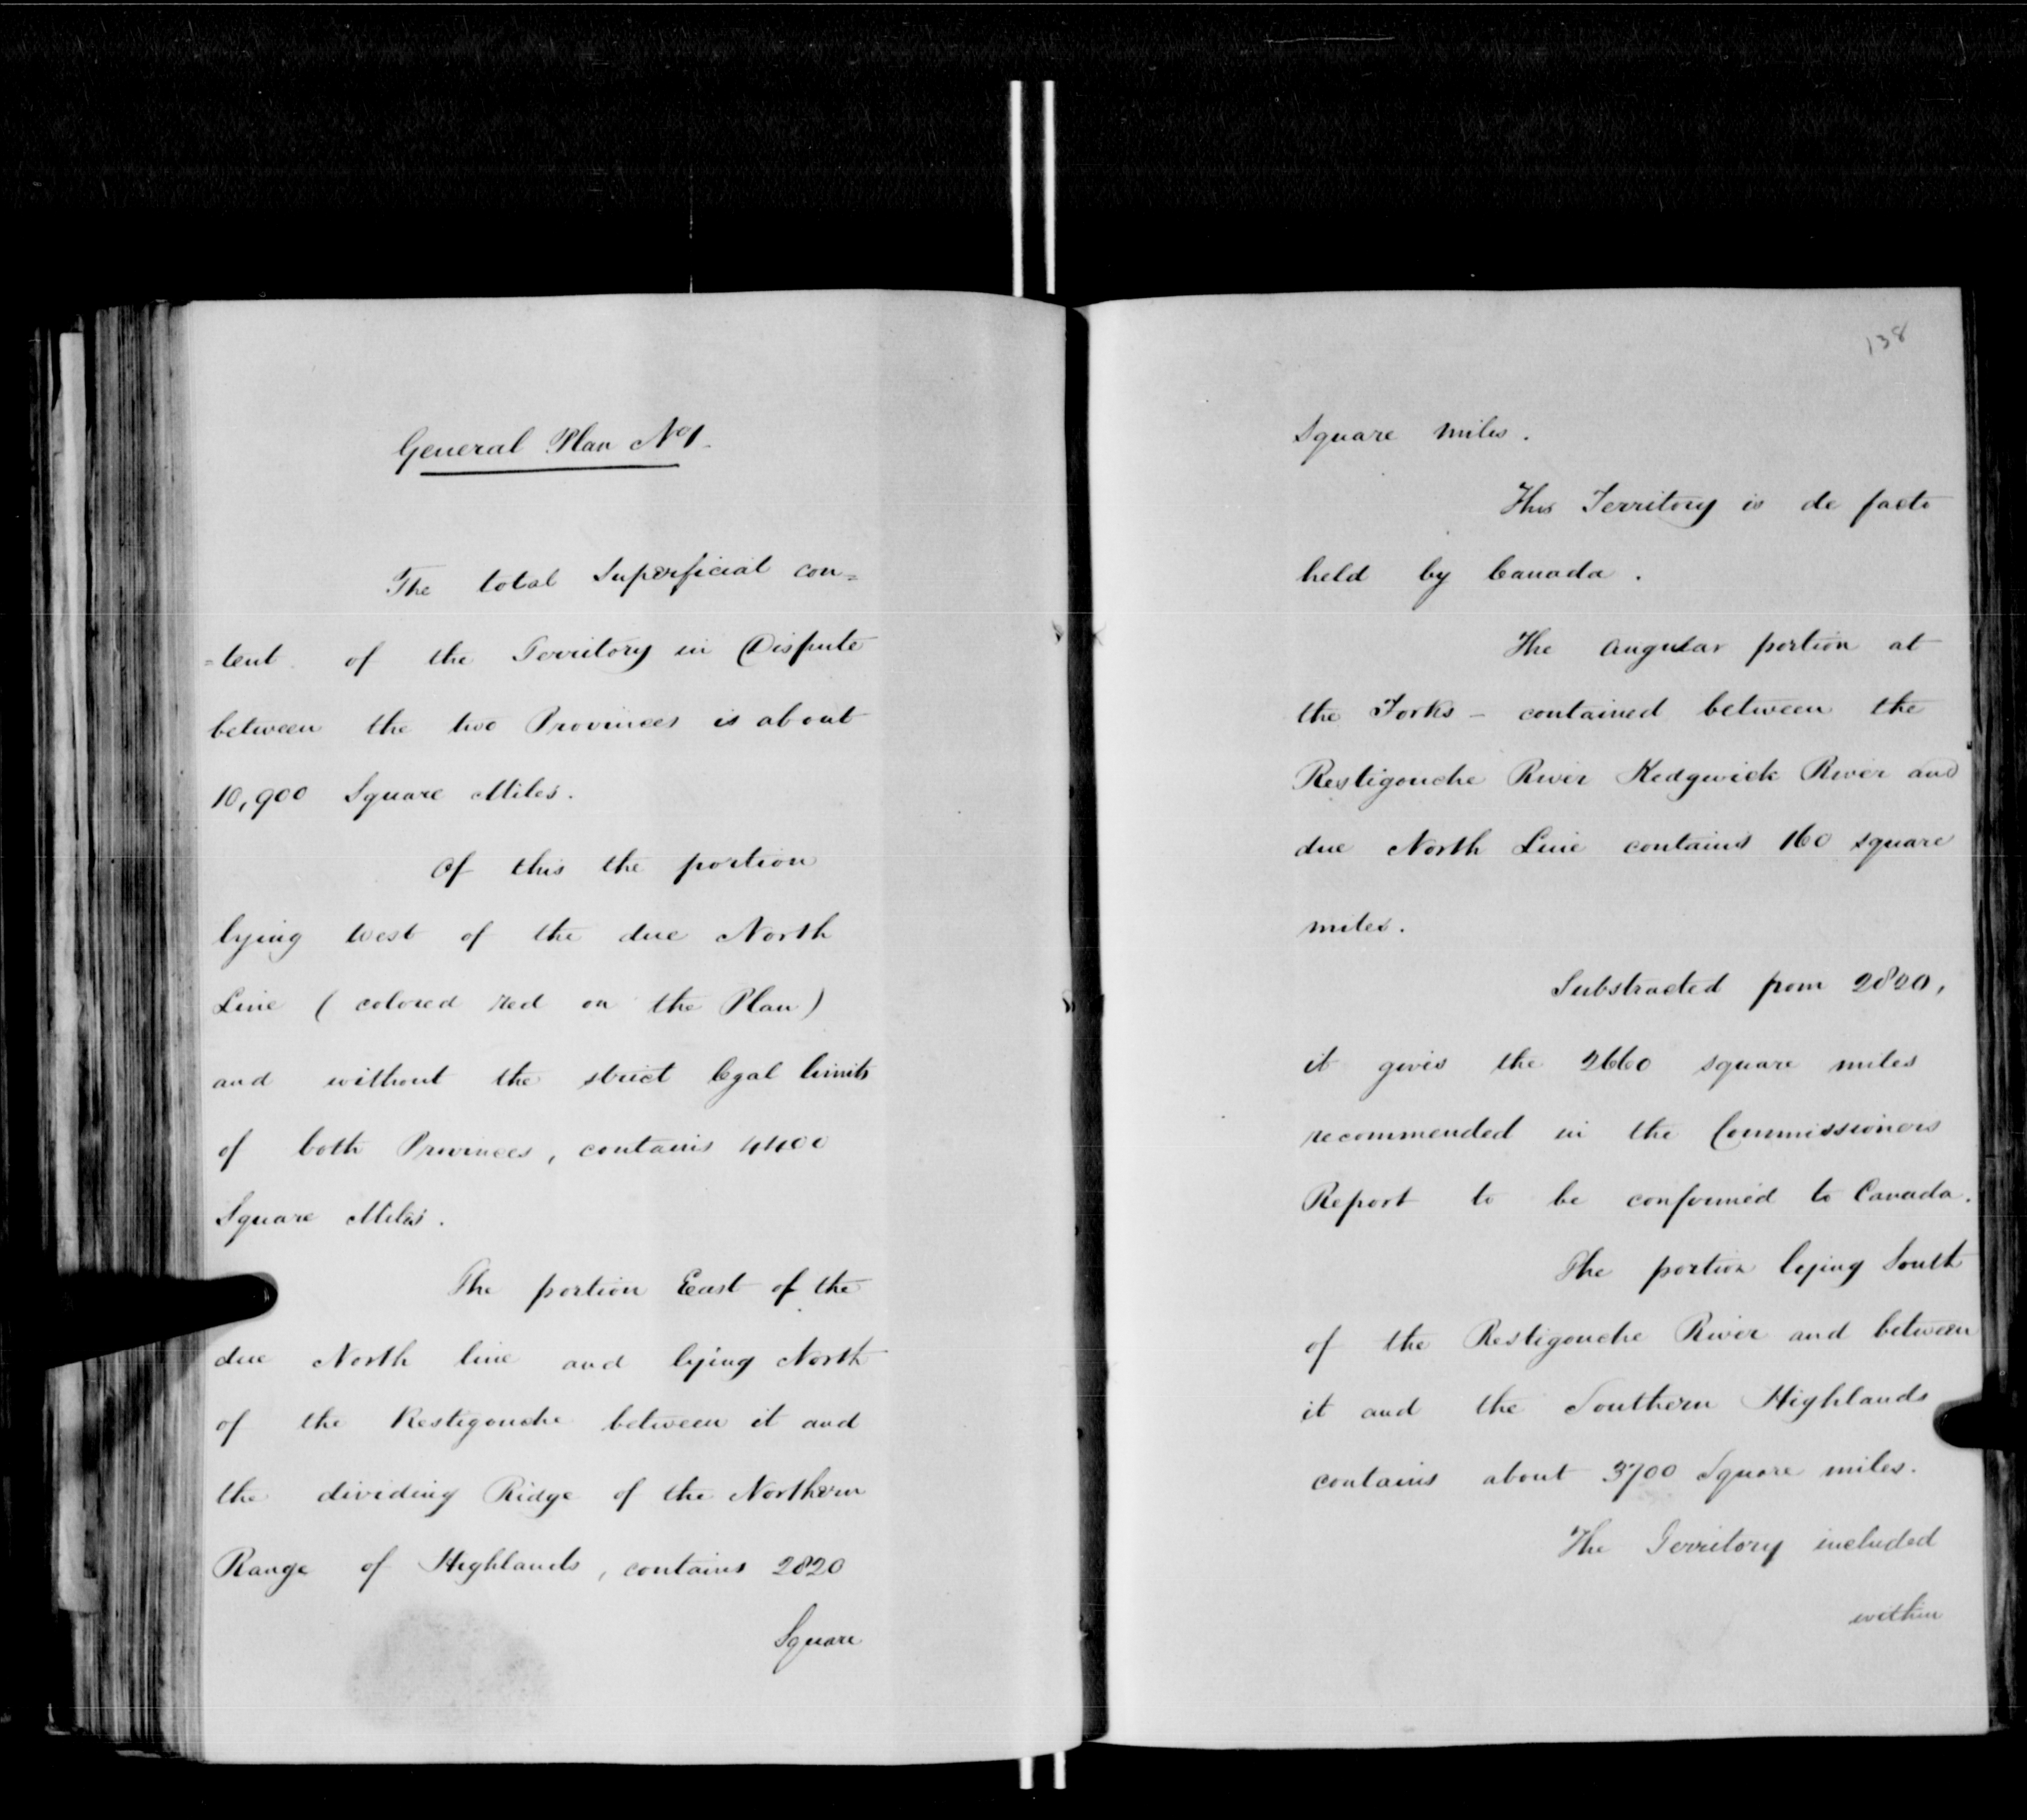 General Plan No 1.
The total Superficial con=
=tent of the Territory in Dispute
between the two Provinces is about
10,900 Square Miles.
Of this the portion
lying West of the due North
Line ( colored red on the Plan )
and without the strict legal limits
of both Provinces, contains 4400
Square Miles.
The portion East of the
due North line and lying North
of the Restigouche between it and
the dividing Ridge of the Northern
Range of Highlands, contains 2820
Square
138
Square miles.
This Territory is de facto
held by Canada.
The angular portion at
the Forks - contained between the
Restigouche River Kedgwick River and
due North Line contains 160 square
miles.
Substracted from 2820,
it gives the 2660 square miles
recommended in the Commissioners
Report to be conformed to Canada.
The portion lying South
of the Restigouche River and between
it and the Southern Highlands
contains about 3700 Square miles.
The Territory included
within